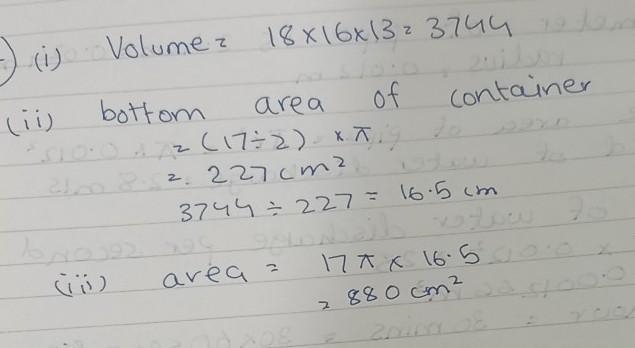 (i) Volume = 18×16×13 = 3744
(ii) bottom area of container
= (17÷2) × π
= 227 cm²
3744 ÷ 227 = 16.5 cm
(iii) area = 17π × 16.5
= 880 cm²